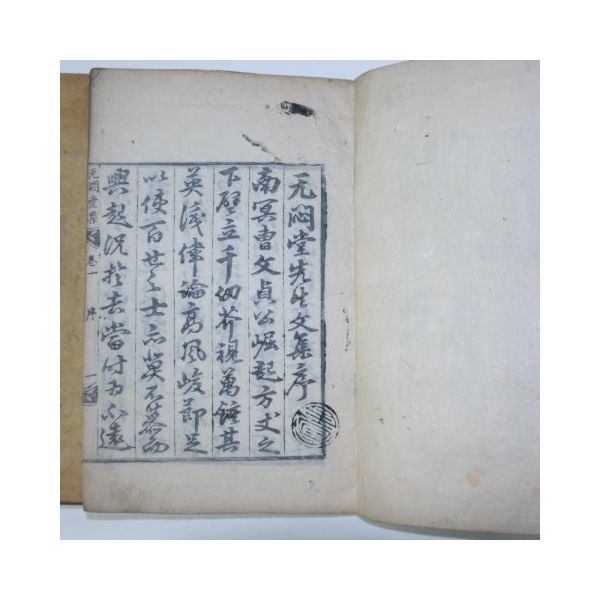 无悶堂先生文集序
南冥曺文貞公崛起方丈之
下壁立千仞芥視萬鍾其
英識偉論高風峻節足
以使百世之士亦莫不慕而
興起況於去當時爲不遠
无悶堂集 卷一 序 一